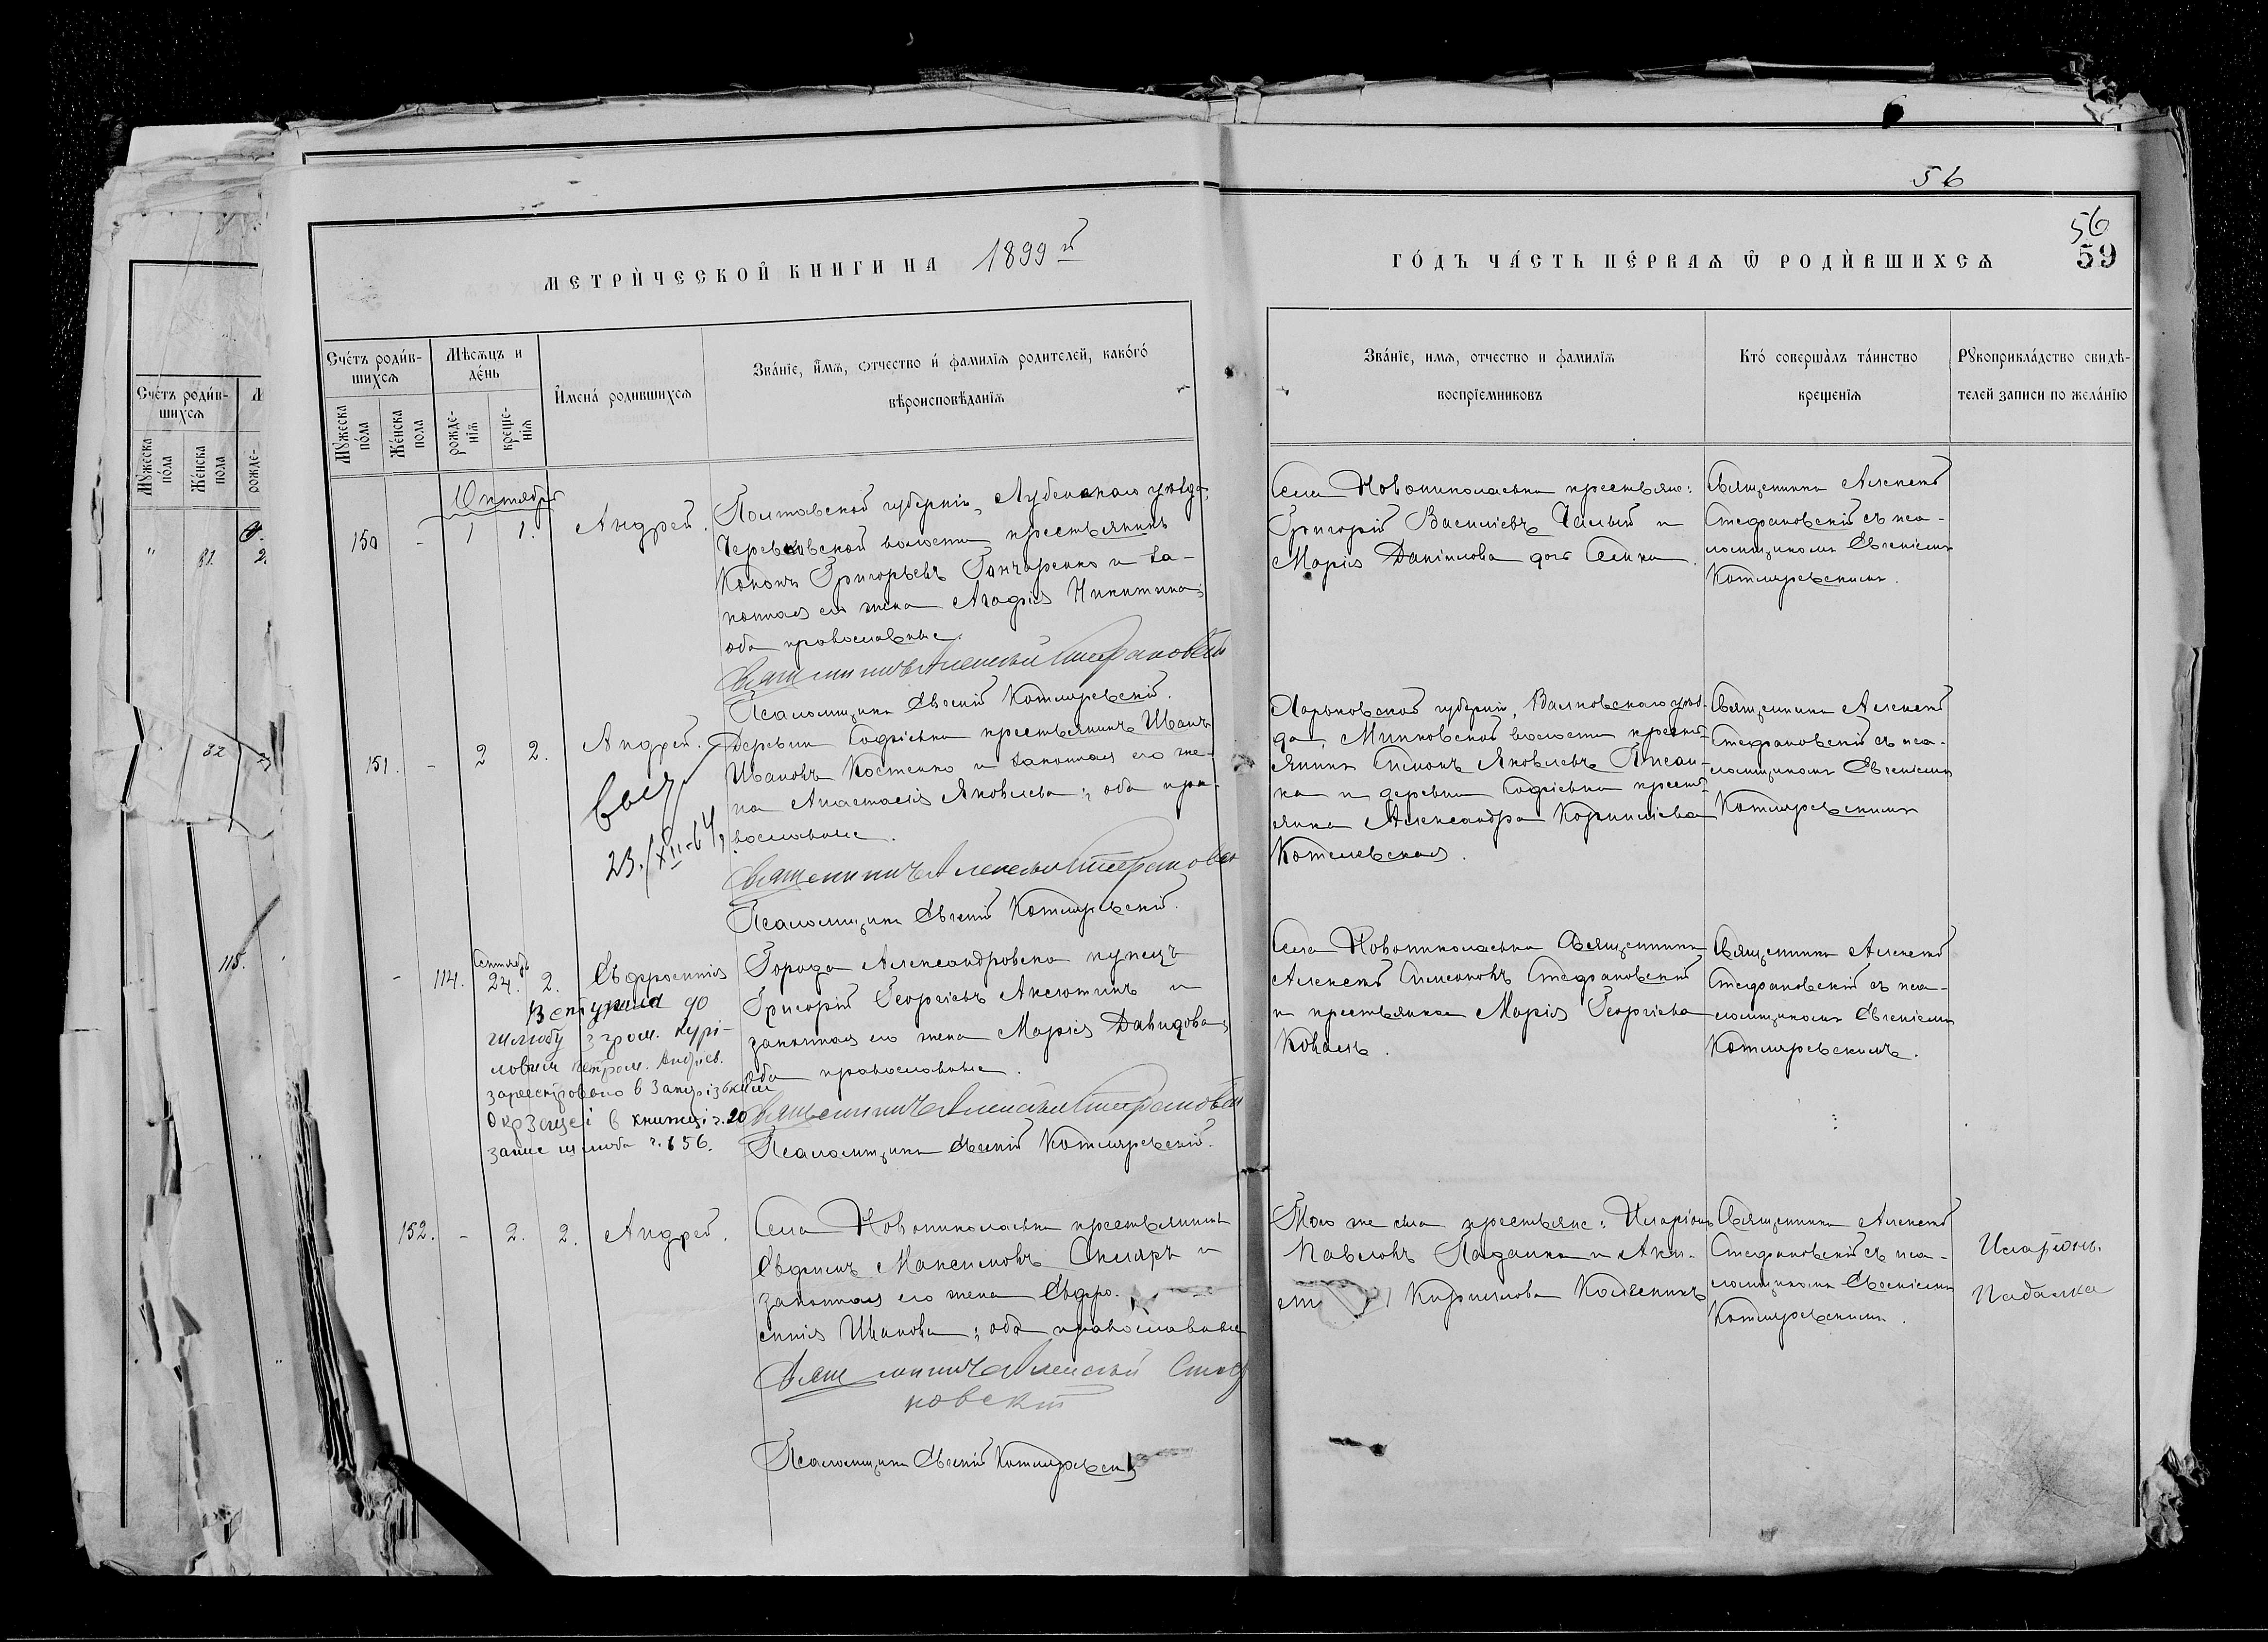 56
56
59
МЕТРИЧЕСКОЙ КНИГИ НА 1899й
ГОДЪ ЧАСТЬ ПЕРВАЯ Ѿ РОДИВШИХСЯ
Счетъ родив-
шихся
Мужеска
пола
Женска
пола
Мѣсяцъ и
день
рожде-
нія
креще-
нія
Имена родившихся
Званіе, имя, отчество и фамилія родителей, какого
вѣроисповѣданія
Званіе, имя, отчество и фамилія
воспріемниковъ
Кто совершалъ таинство
крещенія
Рукоприкладство свидѣ-
телей записи по желанію
Октябрь
150 - 1 1. Андрей.
Полтавской губерніи, Лубенскаго уѣзда,
волости крестьянинъ
Кононъ Григорьевъ Гончаренко и за-
конная его жена Агафія Никитина;
оба православные.
Священникъ Алексѣй Стефановскій
Псаломщикъ Евгеній Котляревскій.
Села Новониколаевки крестьяне:
Григорій Васильевъ и
Марія Даніилова дочь
Священникъ Алексѣй
Стефановскій съ пса-
ломщикомъ Евгеніемъ
Котляревскимъ.
151. - 2 2. Андрей.
23/XII-64
Деревни Софіевки крестьянинъ Иванъ
Ивановъ Костенко и законная его же-
на Анастасія Яковлева; оба пра-
вославные.
Священникъ Алексѣй Стефановскій
Псаломщикъ Евгеній Котляревскій.
Харьковской губерніи, Валковскаго уѣз-
да, волости кресть-
янинъ Симонъ Яковлевъ
ка и деревни Софіевки кресть-
янка Александра Корнилієва
Священникъ Алексѣй
Стефановскій съ пса-
ломщикомъ Евгеніемъ
Котляревскимъ
- 114. Сентябрь 24. 2. Евфросинія
Вступила до
шлюбу з гром. Курі-
ловим Петром. Андреев.
зареєстровано в Запорізькім
Окр Загсеі в книжці ч. 20
запис шлюба ч. 656.
Города Александровска купецъ
Григорій Георгіевъ Аксютинъ и
законная его жена Марія Давидова;
оба православные.
Священникъ Алексѣй Стефановскій
Псаломщикъ Евгеній Котляревскій.
Села Новониколаевки Священникъ
Алексѣй Симеоновъ Стефановскій
и крестьянка Марія Георгіева
Коваль.
Священникъ Алексѣй
Стефановскій съ пса-
ломщикомъ Евгеніемъ
Котляревскимъ.
152. - 2. 2. Андрей.
Села Новониколаевки крестьянинъ
Евфимъ Максимовъ Скляръ и
законная его жена Евфро-
синія Иванова; оба православные
Священникъ Алексѣй Стефа
новскій
Псаломщикъ Евгеній Котляревскій
Того же села крестьяне: Иларіонъ
Павловъ Падалка и
Кириллова Колесникъ
Священникъ Алексѣй
Стефановскій съ пса-
ломщикомъ Евгеніемъ
Котляревскимъ.
Иларіонъ.
Падалка
Счетъ родив-
шихся
Мужеска
пола
Женска
пола
рожде-
" 81. 2.
82
115.